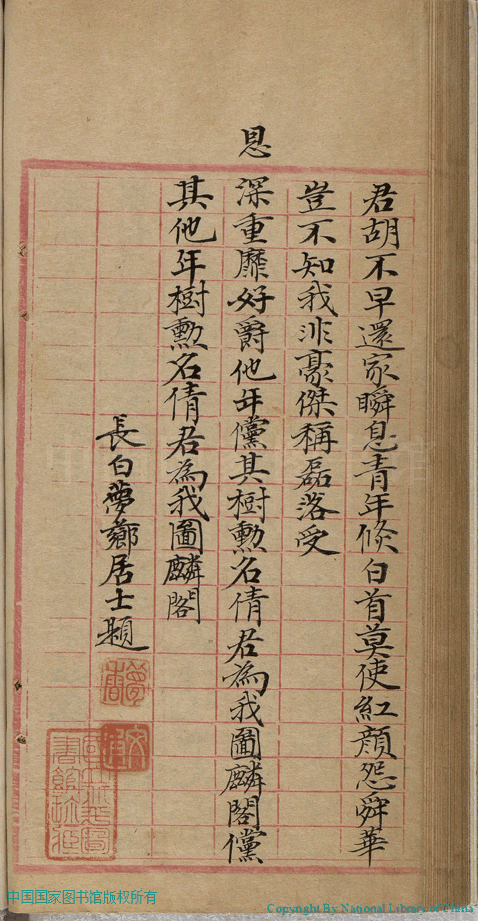 君胡不早還家瞬息青年倏白首莫使紅顏怨舜華
豈不知我非豪傑稱磊落受
恩
深重靡好爵他年儻其樹勳名倩君為我圖麟閣儻
其他年樹勳名倩君為我圖麟閣
長白夢薌居士題
中国国家图书馆版权所有
Copyright By National Library of China